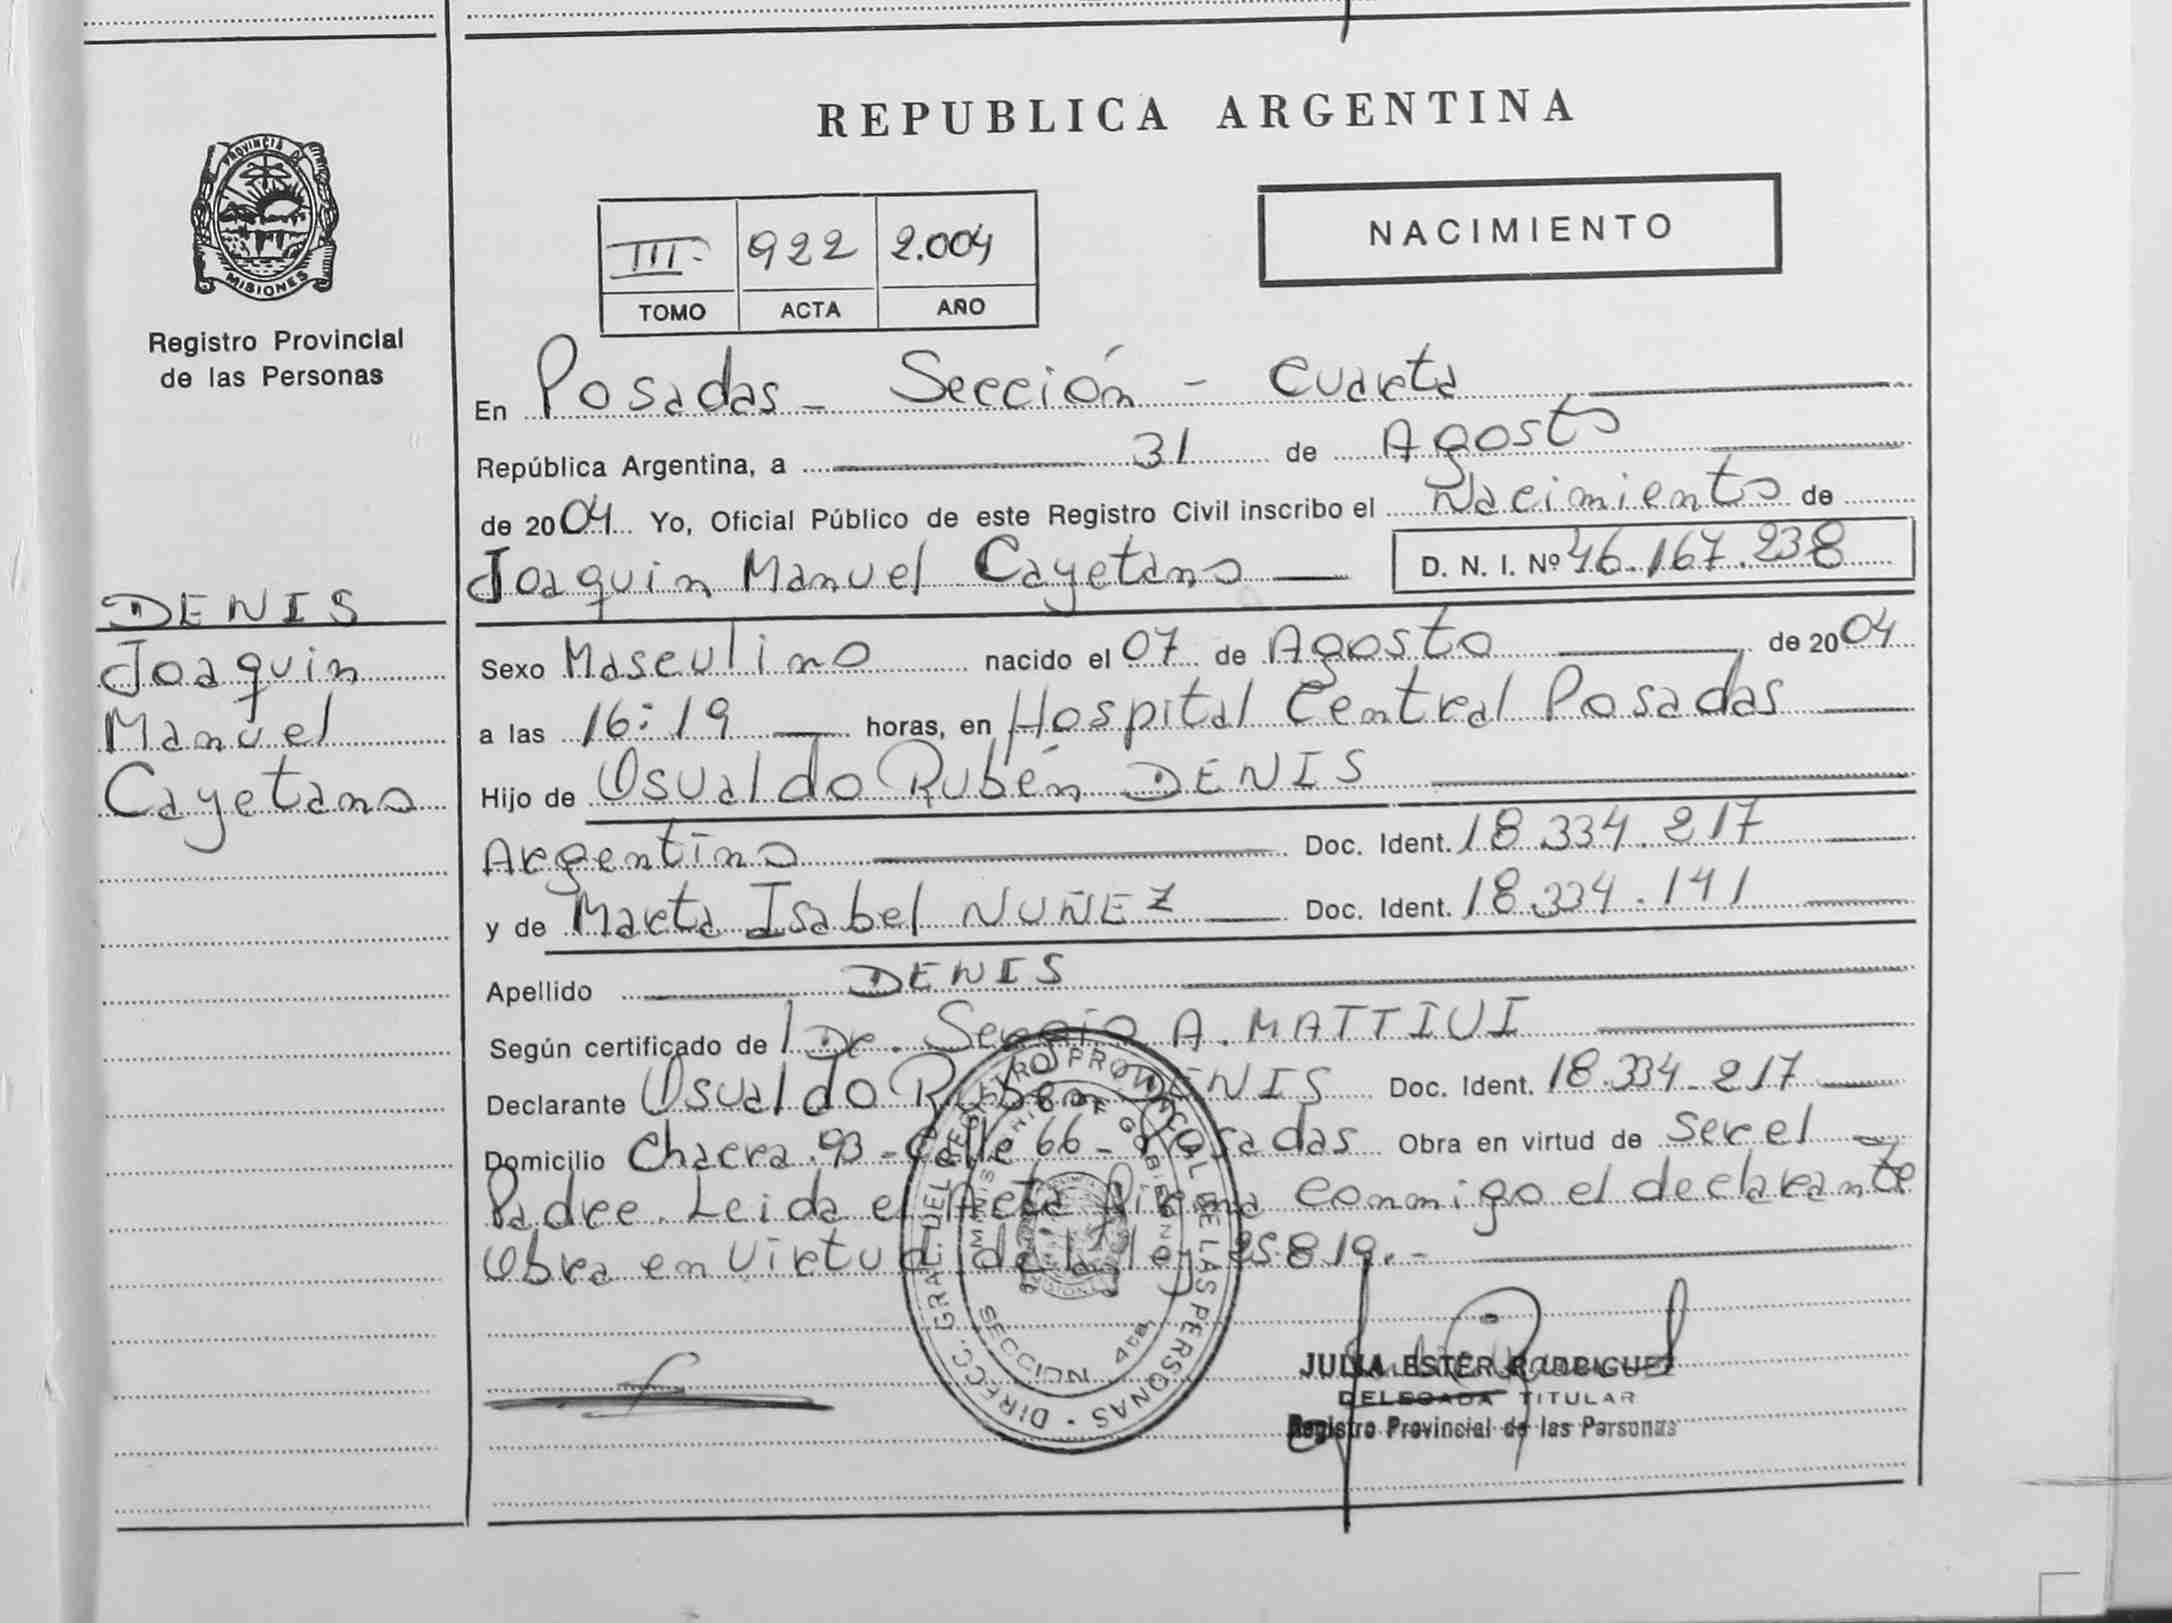 REPUBLICA ARGENTINA
PROVINCIA DE MISIONES
Registro Provincial
de las Personas
III- 922 2.004
TOMO ACTA AÑO
NACIMIENTO
En Posadas - Sección - Cuarta
República Argentina, a 31 de Agosto
de 2004 Yo, Oficial Público de este Registro Civil inscribo el Nacimiento de
Joaquin Manuel Cayetano D. N. I. Nº 46.167.238
DENIS
Joaquin
Manuel
Cayetano
Sexo Masculino nacido el 07 de Agosto de 2004
a las 16:19 horas, en Hospital Central Posadas
Hijo de Osvaldo Rubén DENIS
Argentino Doc. Ident. 18.334.217
y de Marta Isabel NUÑEZ Doc. Ident. 18.334.141
Apellido DENIS
Según certificado de Dr. Sergio A. MATTIVI
Declarante Osvaldo Rubén DENIS Doc. Ident. 18.334.217
Domicilio Chacra 93 - Calle 66 - Posadas Obra en virtud de ser el
Padre. Leida el Acta firma conmigo el declarante
Obra en virtud de la ley 25819.-
DIRECC. GRAL. DEL REGISTRO PROVINCIAL DE LAS PERSONAS
MINISTERIO DE GOBIERNO
SECCION 4ta
JULIA ESTER RODRIGUEZ
DELEGADA TITULAR
Registro Provincial de las Personas